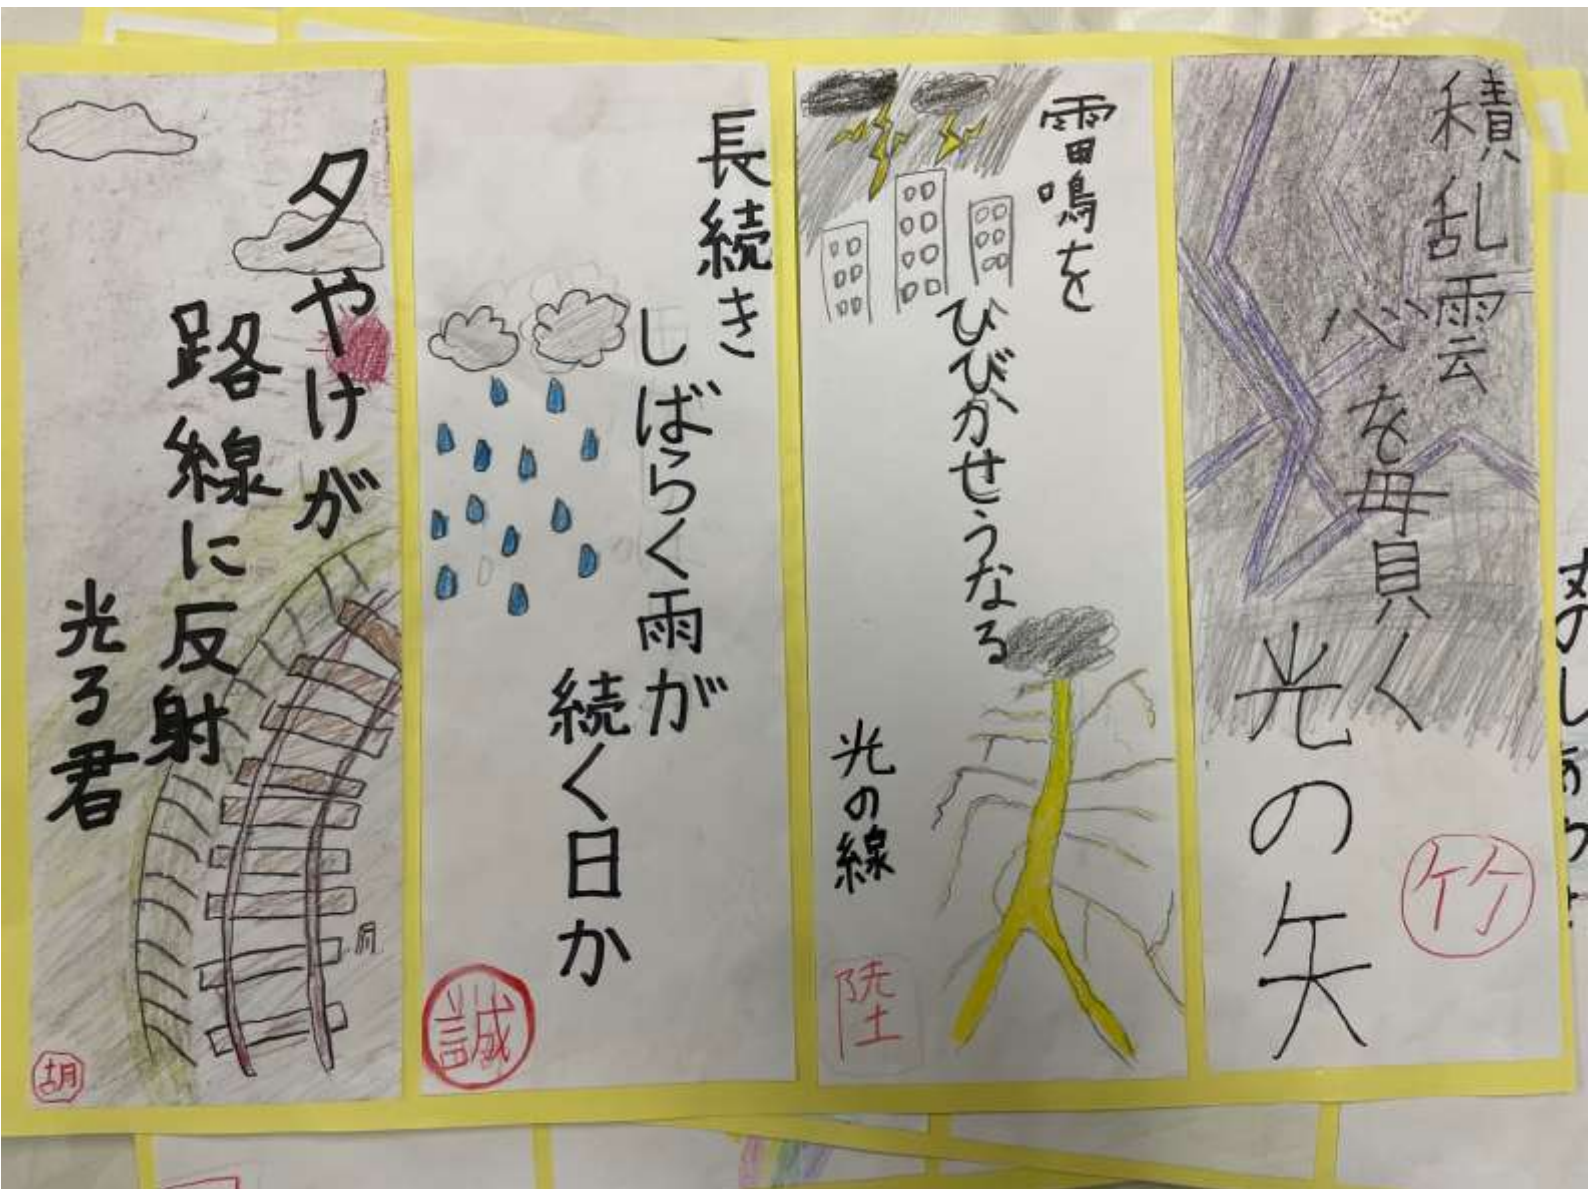 積乱雲
心を貫く
光の矢
竹
雷鳴を
ひびかせうなる
光の線
陸
長続き
しばらく雨が
続く日か
誠
夕やけが
路線に反射
光る君
胡